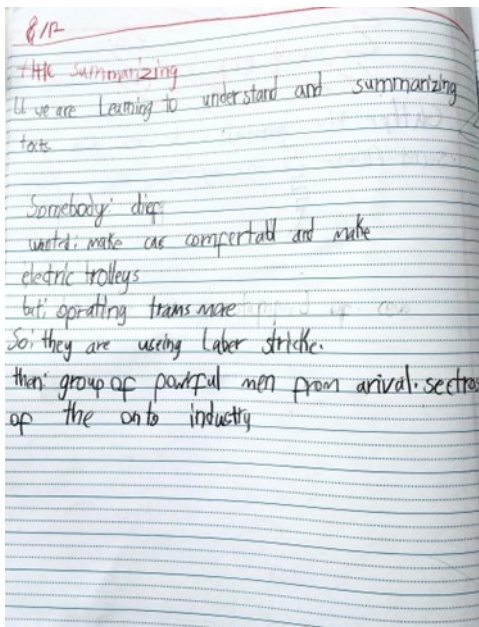 8/12
summarizing
we are Learning to understand and summarizing
texts
Somebody:
wanted: make cas comfertabl and make
electric trolleys
but; oprating trams more
So; they are useing Laber stricke.
then: group of powrful men from arival. sectros
of the onto industry